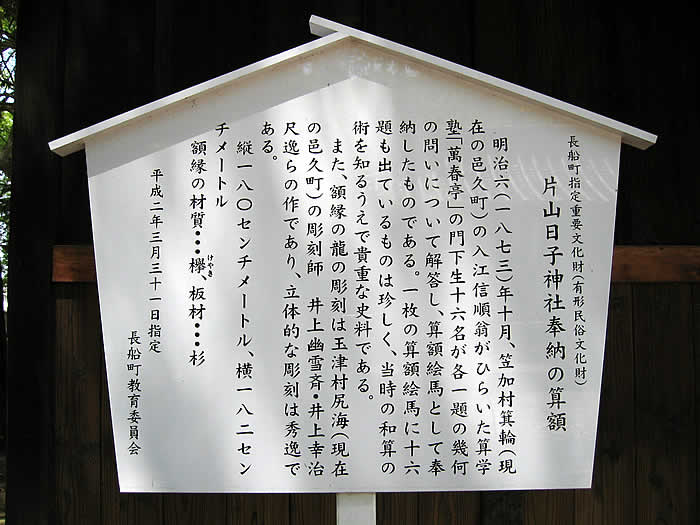 長船町指定重要文化財(有形民俗文化財)
片山日子神社奉納の算額
明治六(一八七三)年十月、笠加村箕輪(現
在の邑久町)の入江信順翁がひらいた算学
塾「萬春亭」の門下生十六名が各一題の幾何
の問いについて解答し、算額絵馬として奉
納したものである。一枚の算額絵馬に十六
題も出ているものは珍しく、当時の和算の
術を知るうえで貴重な史料である。
また、額縁の龍の彫刻は玉津村尻海(現在
の邑久町)の彫刻師 井上幽雪斎・井上幸治
尺逸らの作であり、立体的な彫刻は秀逸で
ある。
縦一八〇センチメートル、横一八二セン
チメートル
額縁の材質・・・欅、板材・・・杉
けやき
平成二年三月三十一日指定
長船町教育委員会